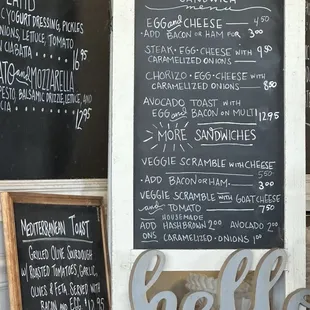 CYOGURT DRESSING, PICKLES
ONIONS, LETTUCE, TOMATO
N CIABATTA 16.95
ATO and MOZZARELLA
PESTO, BALSAMIC DRIZZLE, LETTUCE, AND
CIA 12.95
SANDWICH
menu
EGG and CHEESE 4.50
- ADD BACON OR HAM FOR 3.00
STEAK · EGG · CHEESE WITH 9.50
CARAMELIZED ONIONS
CHORIZO · EGG · CHEESE WITH
CARAMELIZED ONIONS 8.50
AVOCADO TOAST WITH
EGG and BACON ON MULTI 12.95
MORE SANDWICHES
VEGGIE SCRAMBLE WITH CHEESE
5.50
· ADD BACON OR HAM 3.00
VEGGIE SCRAMBLE WITH GOAT CHEESE
and TOMATO 7.50
HOUSEMADE
ADD HASHBROWN 2.00 AVOCADO 2.00
ONS CARAMELIZED ONIONS 1.00
MEDITERRANEAN TOAST
GRILLED OLIVE SOURDOUGH
W/ ROASTED TOMATOES, GARLIC,
OLIVES & FETA. SERVED WITH
BACON and EGG $12.95
hello